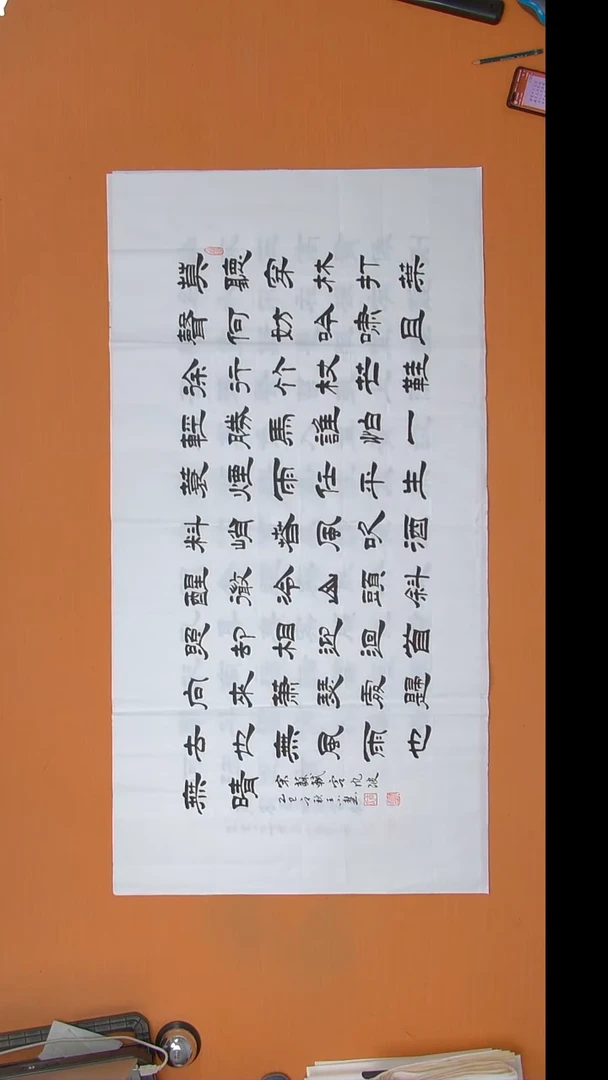 莫聽穿林打葉
聲何妨吟嘯且
徐行竹杖芒鞋
輕勝馬誰怕一
蓑煙雨任平生
料峭春風吹酒
醒微冷山頭斜
照却相迎迴首
向來蕭瑟處歸
去也無風雨也
無晴
宋蘇軾定風波
乙巳